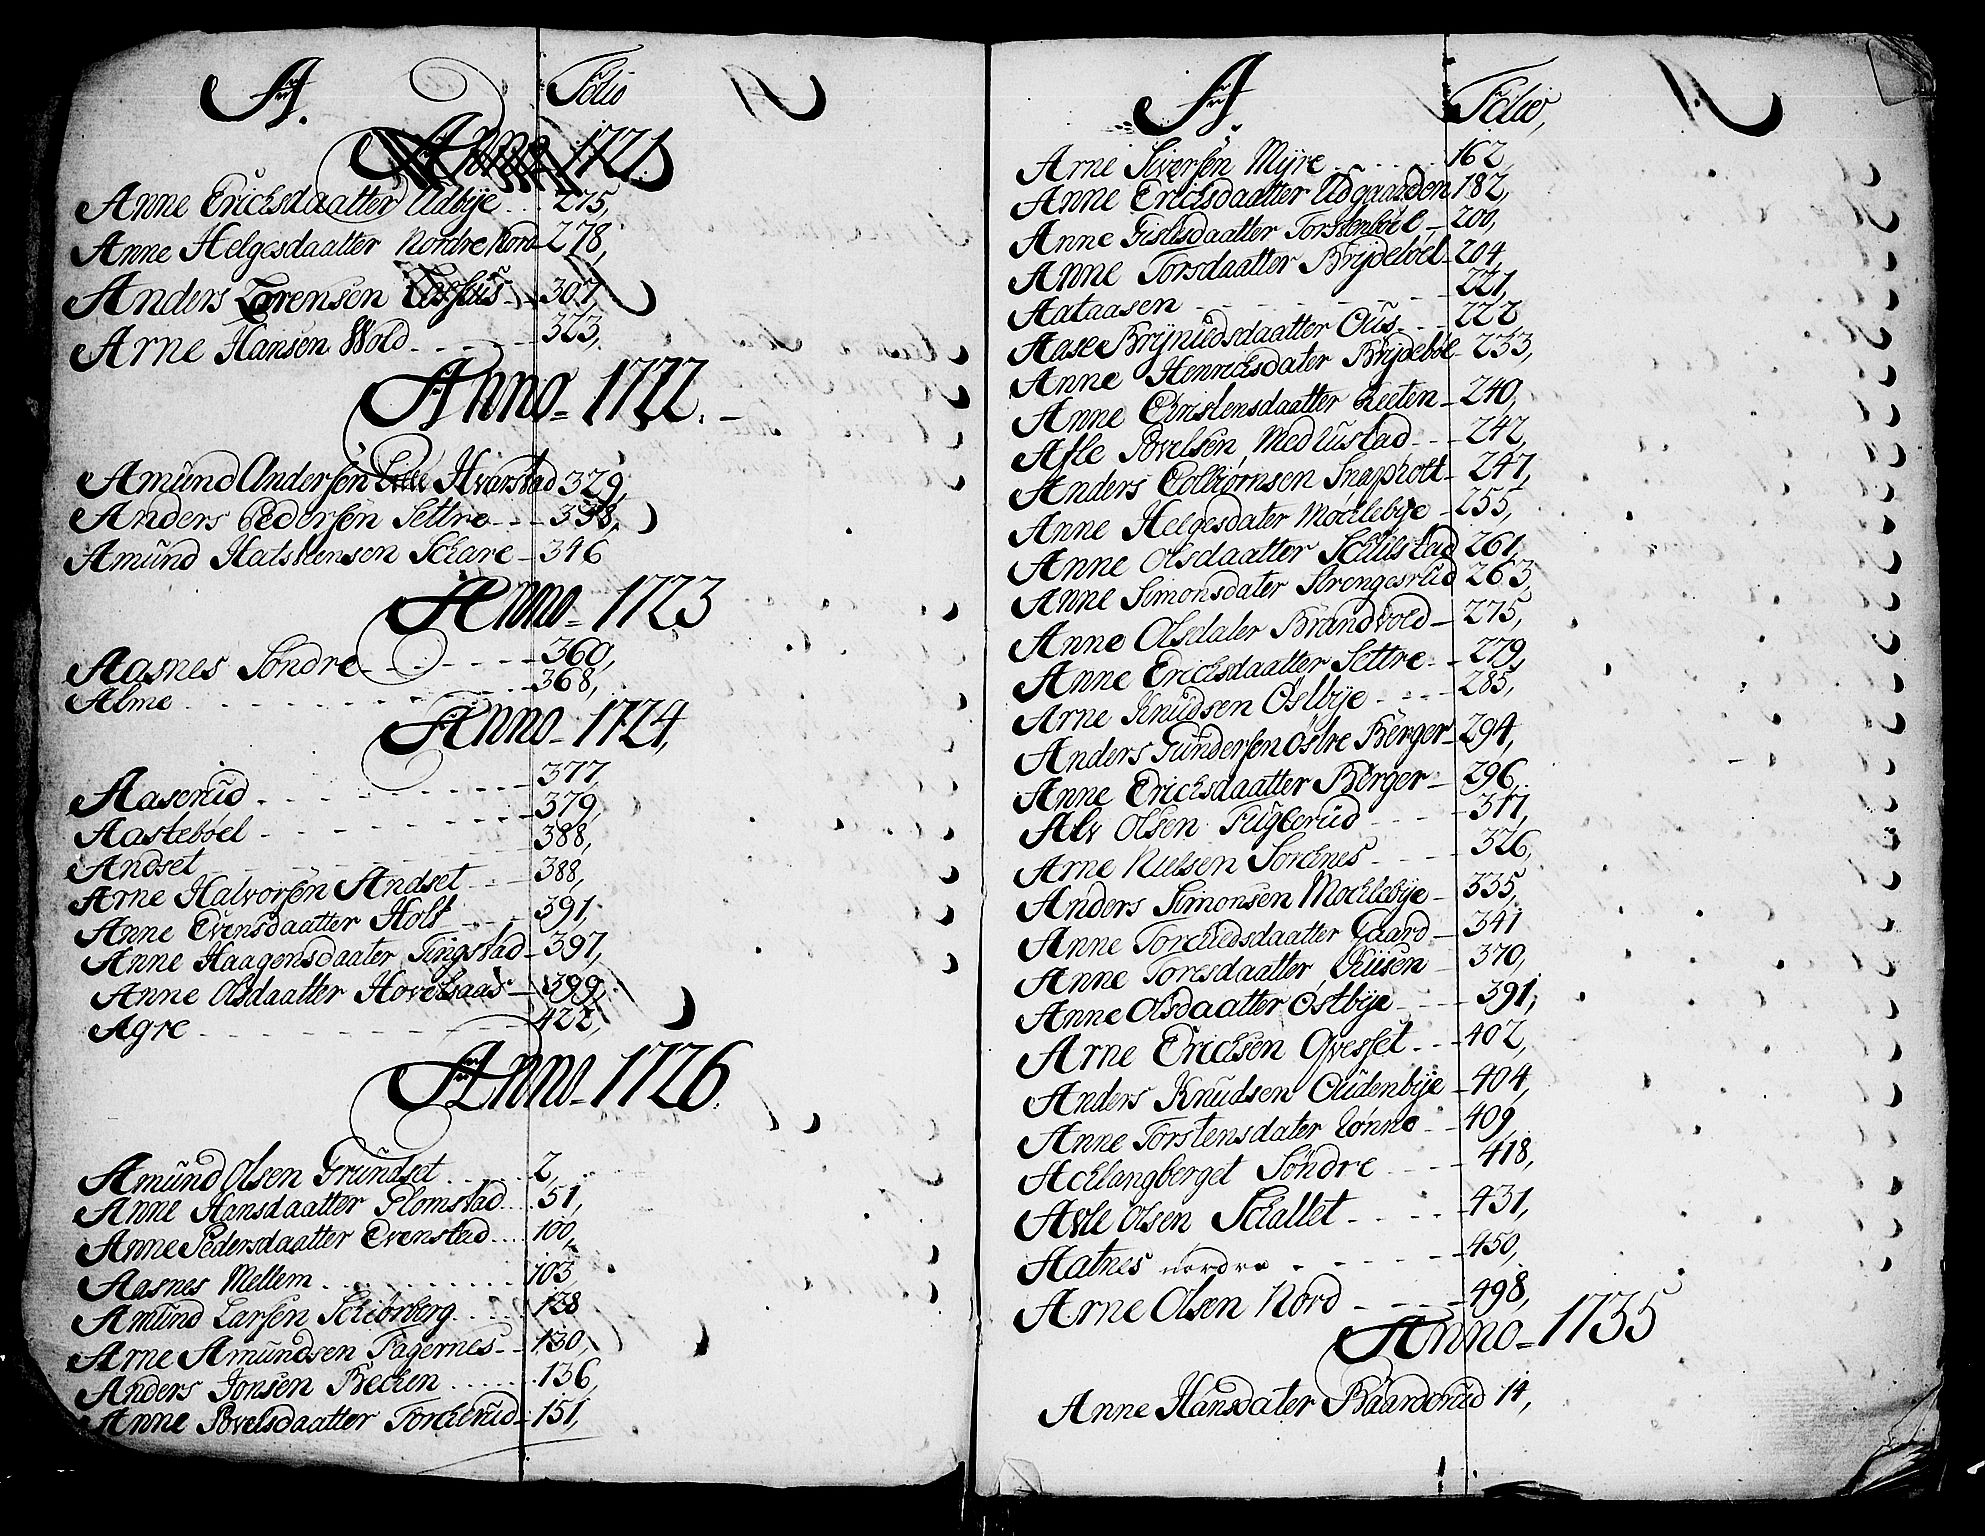 A. Folio
Anno 1721
Anne Erichsdaatter Udbÿe 275,
Anne Helgesdaatter Nordre Nord 278,
Anders Lorensen 307,
Arne Hansen Wold 323,
Anno 1722.
Amund Andersen Lille Hvarstad 329,
Anders Pedersen Settre 338,
Amund Halstensen Schare 346
Anno 1723
Aasnes Søndre 360,
Alme 368,
Anno 1724,
Aaserud 377,
Aasteböel 379,
Andset 388,
Arne Halvorsen Andset 388,
Anne Evensdaatter Holt 391,
Anne Haagensdaater Tingstad 397,
Anne Olsdaatter Hovelsaas 399,
Agre 422,
Anno 1726.
Amund Olsen Grundset 2,
Anne Hansdaatter Flomstad 51,
Anne Pedersdaatter Evenstad 100,
Aasnes Mellem 103,
Amund Larsen Schiörberg 128
Arne Amundsen Fagernes 130,
Anders Jonsen Bechen 136,
Anne Povelsdaatter Torcherud 151,
A Folio,
Arne Siversen Mÿre 162,
Anne Erichsdaatter Udgaarden 182,
Anne Gislesdaatter Torstenböel 200,
Anne Torsdaatter Brÿdeböel 204,
Aataasen 221,
Aase Brÿnildsdaatter Ous 222
Anne Henrichsdater Brÿdeböl 233,
Anne Christensdaatter Leeten 240,
Asle Povelsen Medlustad 242,
Anders Colbiörnsen Snaphott 247,
Anne Helgesdater Möchlebÿe 255,
Anne Olsdaatter Schulstad 261,
Anne Simonsdater Strengesrud 263,
Anne Olsdater Brandvold 275,
Anne Erichsdaatter Settre 279,
Arne Knudsen Östbÿe 285,
Anders Gundersen Östre Berger 294,
Anne Erichsdaatter Berger 296,
Alv Olsen Fuglerud 317,
Arne Nielsen Sorchnes 326,
Anders Simonsen Mochlebÿe 335,
Anne Torchildsdaatter Gaard 341
Anne Toresdaatter Kiisen 370,
Anne Olsdaatter Östbÿe 391,
Arne Erichsen Qvesset 402,
Anders Knudsen Oudenbÿe 404,
Anne Torstensdater Lönne 409,
Achlangberget Søndre 418,
Avle Olsen Schallet 431,
Aatnes nordre 450,
Arne Olsen Nord 498,
Anno 1735
Anne Hansdater Baarderud 14,